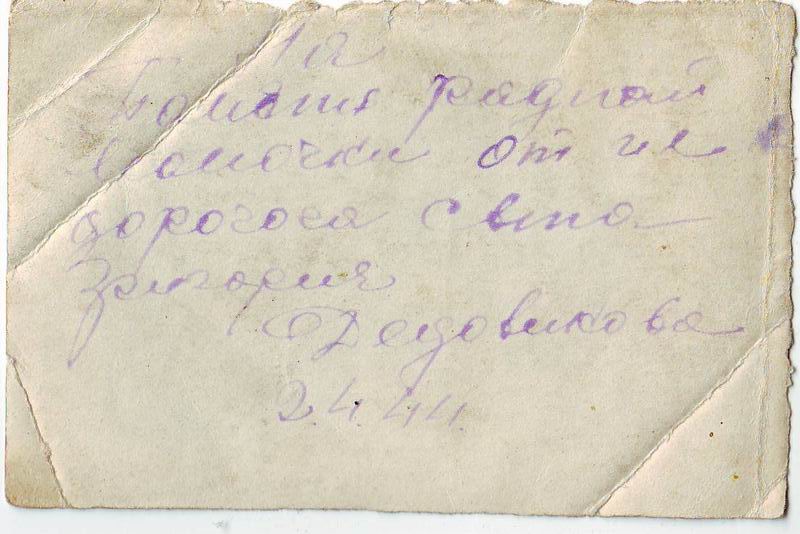 На
Помять радной
мамочки от ие
дорогога сына
Григория
Дедовикова
2.4.44.